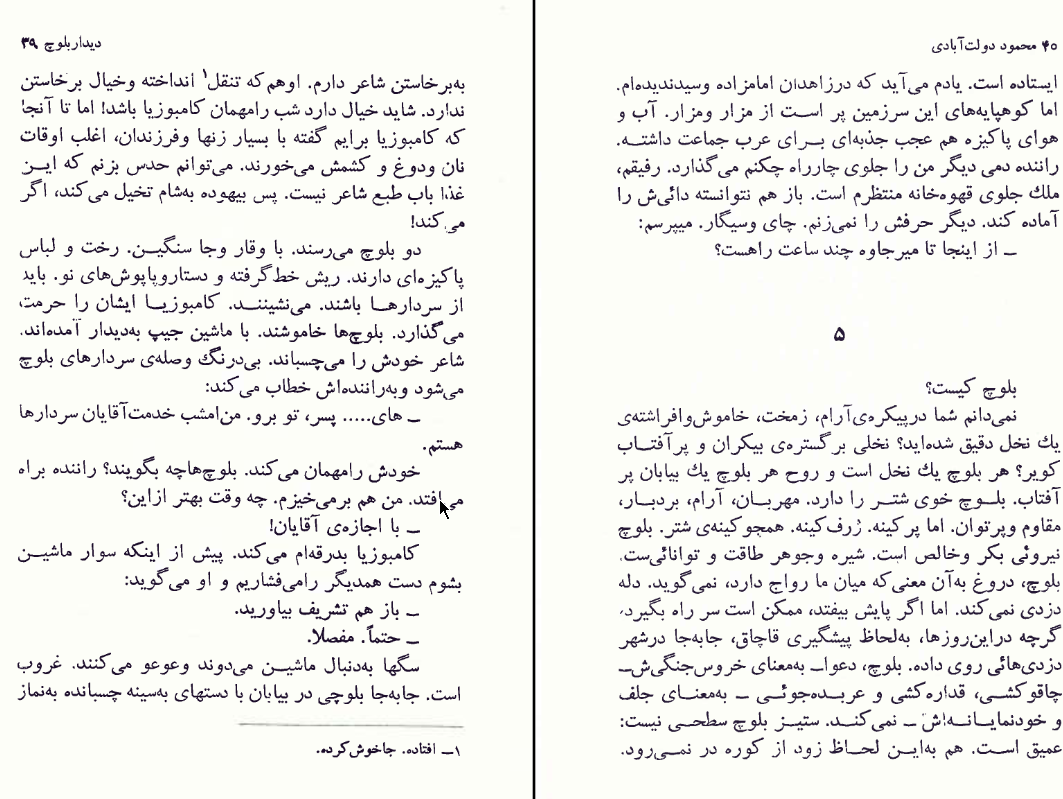 دیدار بلوچ ۳۹
به‌برخاستن شاعر دارم. او هم که تنقل۱ انداخته وخیال برخاستن
ندارد. شاید خیال دارد شب رامهمان کامبوزیا باشد! اما تا آنجا
که کامبوزیا برایم گفته با بسیار زنها وفرزندان، اغلب اوقات
نان ودوغ و کشمش می‌خورند. می‌توانم حدس بزنم که ایــن
غذا باب طبع شاعر نیست. پس بیهوده به‌شام تخیل می‌کند، اگر
می‌کند!
دو بلوچ می‌رسند. با وقار وجا سنگیــن. رخت و لباس
پاکیزه‌ای دارند. ریش خط‌گرفته و دستاروپاپوش‌های نو. باید
از سردارهــا باشند. می‌نشیننــد. کامبوزیــا ایشان را حرمت،
می‌گذارد. بلوچ‌ها خاموشند. با ماشین جیپ به‌دیدار آمده‌اند.
شاعر خودش را می‌چسباند. بی‌درنگ وصله‌ی سردارهای بلوچ
می‌شود وبه‌راننده‌اش خطاب می‌کند:
ــ های..... پسر، تو برو. من‌امشب خدمت‌آقایان سردارها
هستم.
خودش رامهمان می‌کند. بلوچ‌هاچه بگویند؟ راننده براه
می‌افتد. من هم برمی‌خیزم. چه وقت بهتر ازاین؟
ــ با اجازه‌ی آقایان!
کامبوزیا بدرقه‌ام می‌کند. پیش از اینکه سوار ماشیــن
بشوم دست همدیگر رامی‌فشاریم و او می‌گوید:
ــ باز هم تشریف بیاورید.
ــ حتماً. مفصلا.
سگها به‌دنبال ماشیــن می‌دوند وعوعو می‌کنند. غروب
است. جابه‌جا بلوچی در بیابان با دستهای به‌سینه چسبانده به‌نماز
۱ــ افتاده. جاخوش‌کرده.
۴۰ محمود دولت‌آبادی
ایستاده است. یادم می‌آید که درزاهدان امامزاده وسیدندیده‌ام.
اما کوهپایه‌های این سرزمین پر اســت از مزار ومزار. آب و
هوای پاکیزه هم عجب جذبه‌ای بــرای عرب جماعت داشتــه.
راننده دمی دیگر من را جلوی چارراه چکنم می‌گذارد. رفیقم،
ملك جلوی قهوه‌خانه منتظرم است. باز هم نتوانسته دائی‌ش را
آماده کند. دیگر حرفش را نمی‌زنم. چای وسیگار. میپرسم:
ــ از اینجا تا میرجاوه چند ساعت راهست؟
۵
بلوچ کیست؟
نمی‌دانم شما درپیکره‌ی‌آرام، زمخت، خاموش‌وافراشته‌ی
یك نخل دقیق شده‌اید؟ نخلی برگستره‌ی بیکران و پرآفتــاب
کویر؟ هر بلوچ یك نخل است و روح هر بلوچ یك بیابان پر
آفتاب. بلــوچ خوی شتــر را دارد. مهربــان، آرام، بردبــار،
مقاوم وپرتوان. اما پرکینه. ژرف‌کینه. همچوکینه‌ی شتر. بلوچ
نیروئی بکر وخالص است. شیره وجوهر طاقت و توانائی‌ست.
بلوچ، دروغ به‌آن معنی‌که میان ما رواج دارد، نمی‌گوید. دله
دزدی نمی‌کند. اما اگر پایش بیفتد، ممکن است سر راه بگیرد.
گرچه دراین‌روزها، به‌لحاظ پیشگیری قاچاق، جابه‌جا درشهر
دزدی‌هائی روی داده. بلوچ، دعواــ به‌معنای خروس‌جنگی‌ش‌ــ
چاقوکشــی، قداره‌کشی و عربــده‌جوئــی ــ به‌معنــای جلف
و خودنمایــانــه‌اش ــ نمی‌کنــد. ستیــز بلوچ سطحــی نیست:
عمیق اســت. هم به‌ایــن لحــاظ زود از کوره در نمــی‌رود.